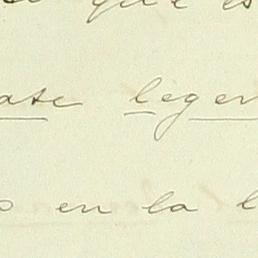 que es
ase legen
en la l